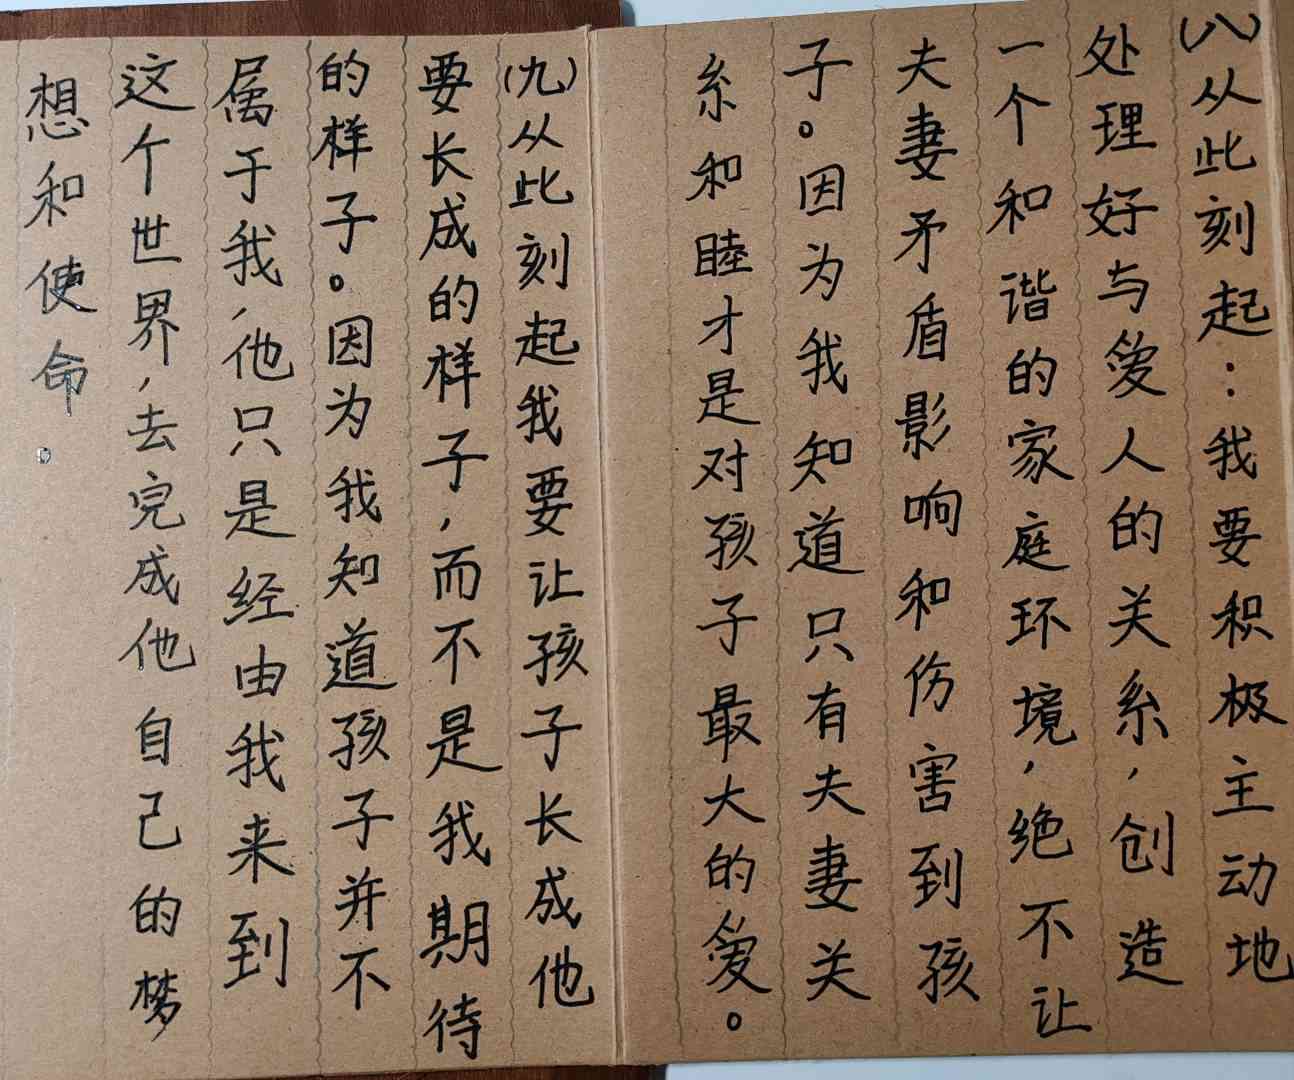 (八)从此刻起：我要积极主动地
处理好与爱人的关系，创造
一个和谐的家庭环境，绝不让
夫妻矛盾影响和伤害到孩
子。因为我知道只有夫妻关
系和睦才是对孩子最大的爱。
(九)从此刻起我要让孩子长成他
要长成的样子，而不是我期待
的样子。因为我知道孩子并不
属于我，他只是经由我来到
这个世界，去完成他自己的梦
想和使命。